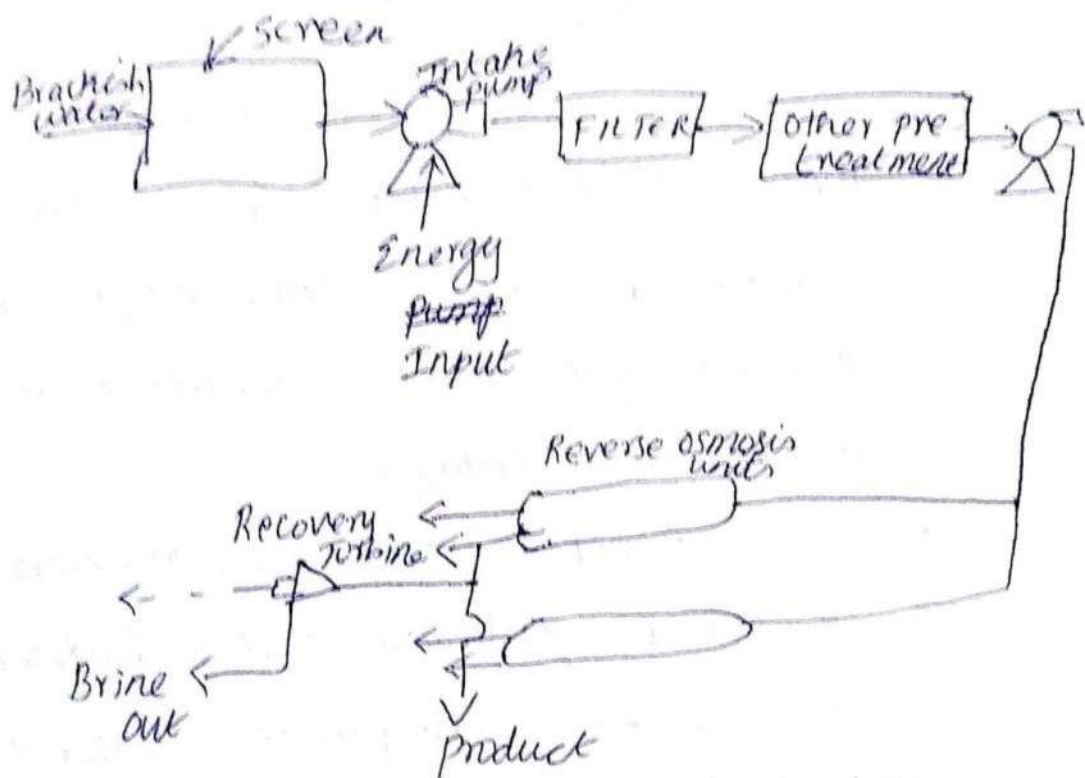 Screen
Brackish
water
Intake
pump
FILTER
Other pre
treatment
Energy
pump
Input
Reverse osmosis
units
Recovery
Turbine
Brine
out
product